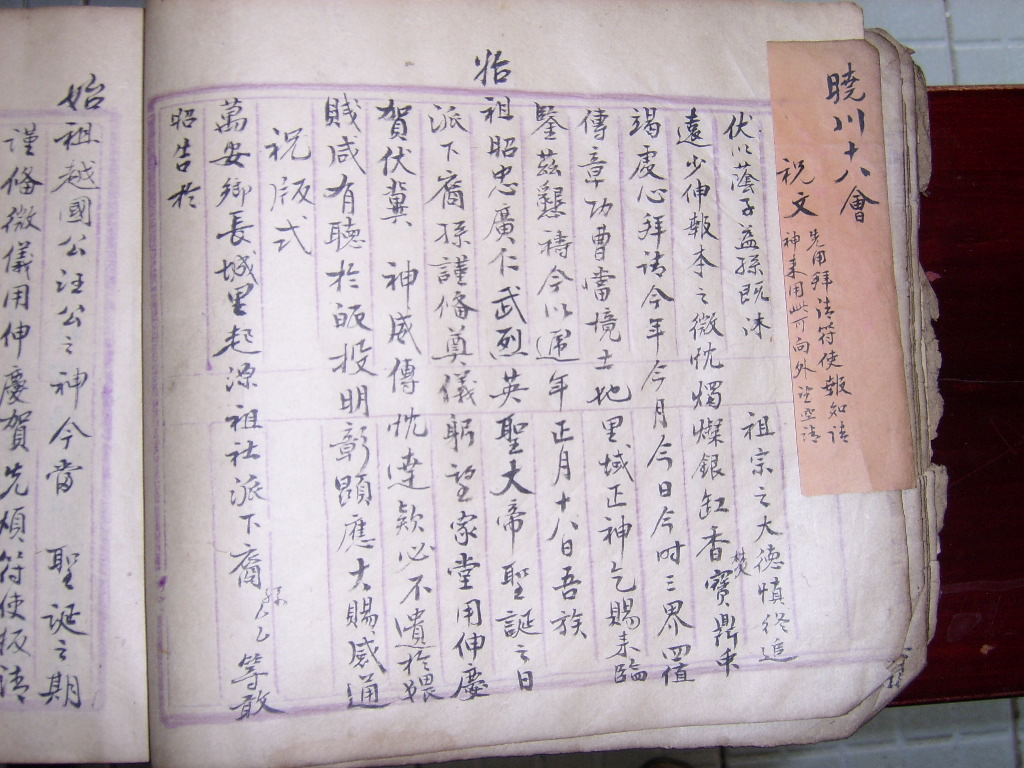 曉川十八會
祝文
先用拜請符使報知請
神来用此可向外望空請
伏以蔭子益孫既沐 祖宗之大德慎終追
遠少伸報本之微忱燭燦銀缸香焚寶鼎
竭虔心拜请今年今月今日今时三界四值
傳章功曹當境土地里域正神乞賜来臨
鑒兹懇祷今以遞年正月十八日吾族
始祖昭忠廣仁武烈英聖大帝聖誕之日
派下裔孫謹俻尊儀躬望家堂用伸慶
賀伏冀 神威傳忱達欵必不遺於猥
賎咸有聽於皈投明彰顕應大賜感通
祝版式
萬安鄉長城里起源祖社派下裔孫△△等敢
昭告於
始祖越國公汪公之神今當 聖誕之期
謹俻微儀用伸慶賀先煩符使板請